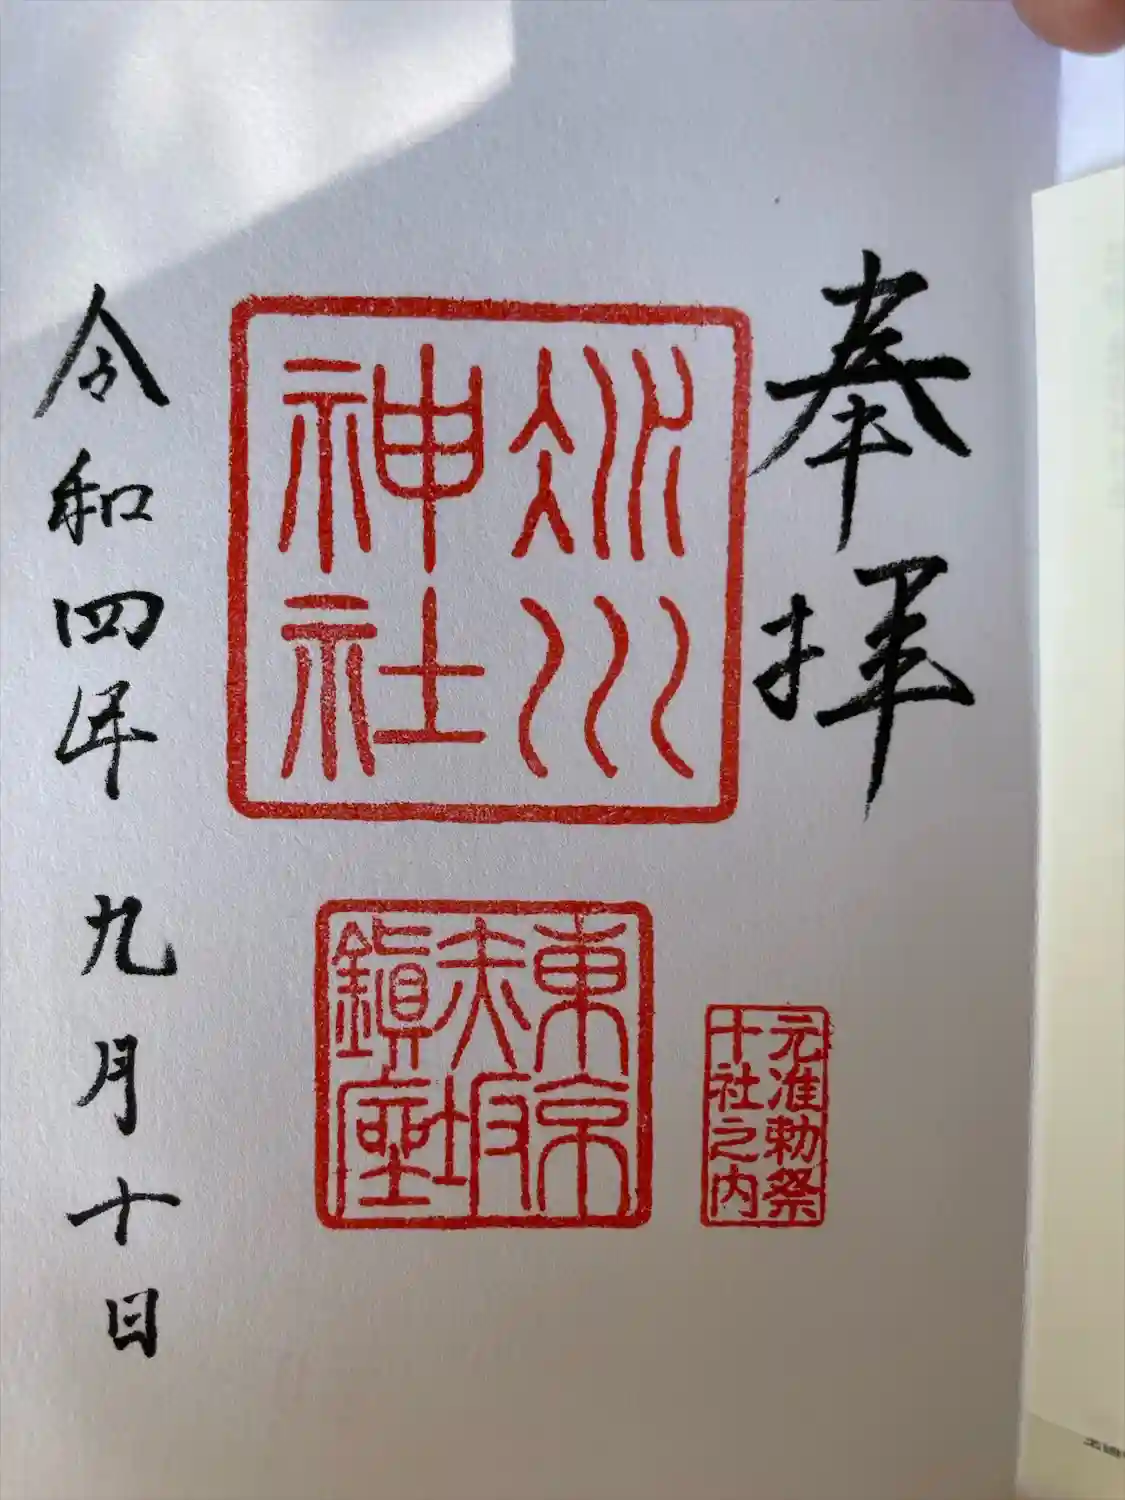 奉拝
氷川
神社
東京
赤坂
鎮座
元准勅祭
十社之内
令和四年 九月十日